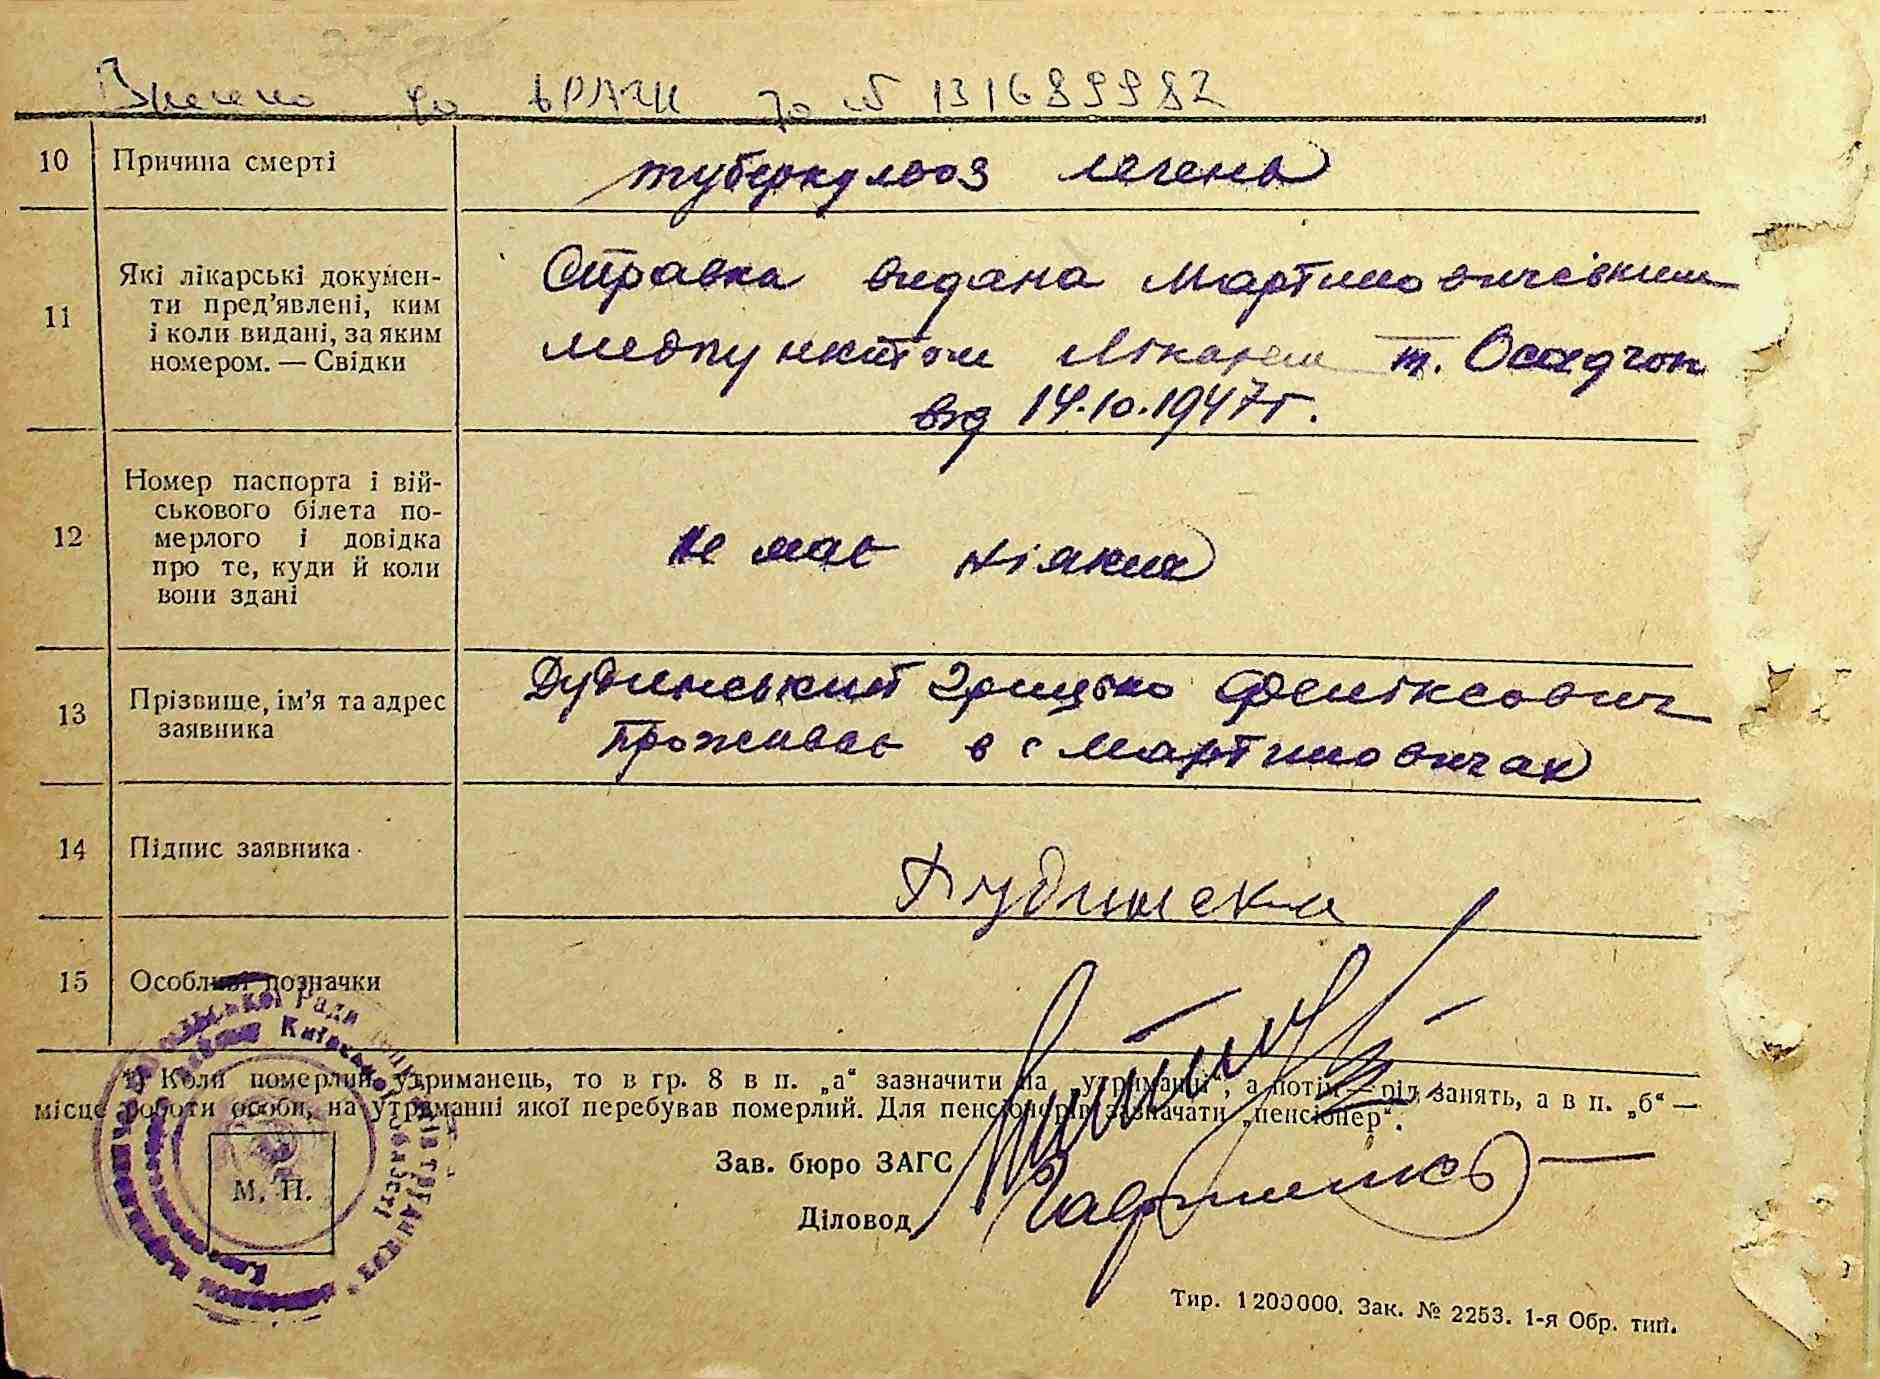 Внесено до ДРАЦС за № 131689982
10 Причина смерті туберкульоз легень
11 Які лікарські докумен-
ти пред’явлені, ким
і коли видані, за яким
номером. — Свідки
Справка видана Мартиновичівким
медпунктом Лікарем т. Осадчок
від 14.10.1947 г.
12 Номер паспорта і вій-
ськового білета по-
мерлого і довідка
про те, куди й коли
вони здані
не має ніяких
13 Прізвище, ім’я та адрес
заявника
Дубинський Грицько Феліксович
Проживає в с Мартиновичах
14 Підпис заявника
15 Особливі позначки
1) Коли померлий утриманець, то в гр. 8 в п. „а“ зазначити на „утриманні“, а потім — рід занять, а в п. „б“ —
місце роботи особи, на утриманні якої перебував померлий. Для пенсіонерів зазначати „пенсіонер“.
Зав. бюро ЗАГС
Діловод
М. П.
Тир. 1200000. Зак. № 2253. 1-я Обр. тип.